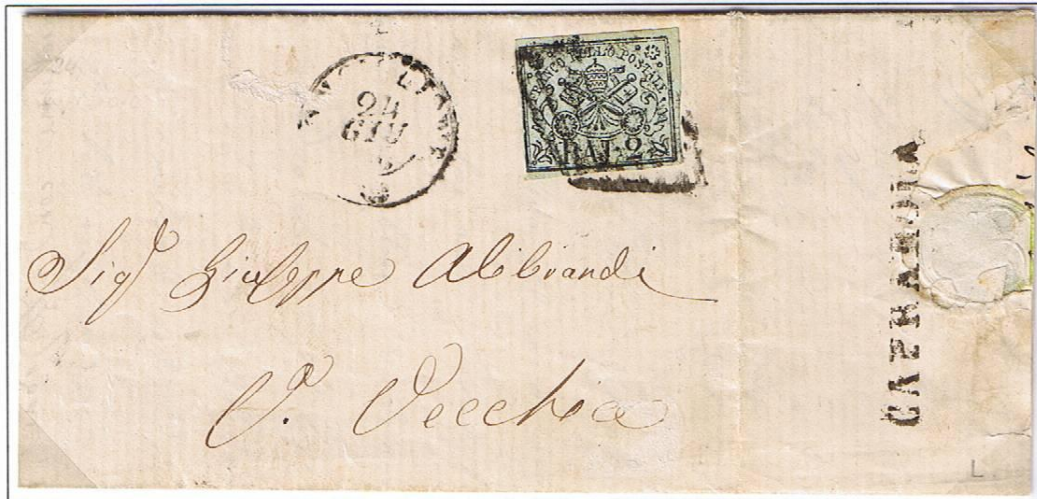 24
GIU
FRANCO BOLLO POSTALE
BAJ. 2
Sig.r Giuseppe Alibrandi
C. Vecchia
L